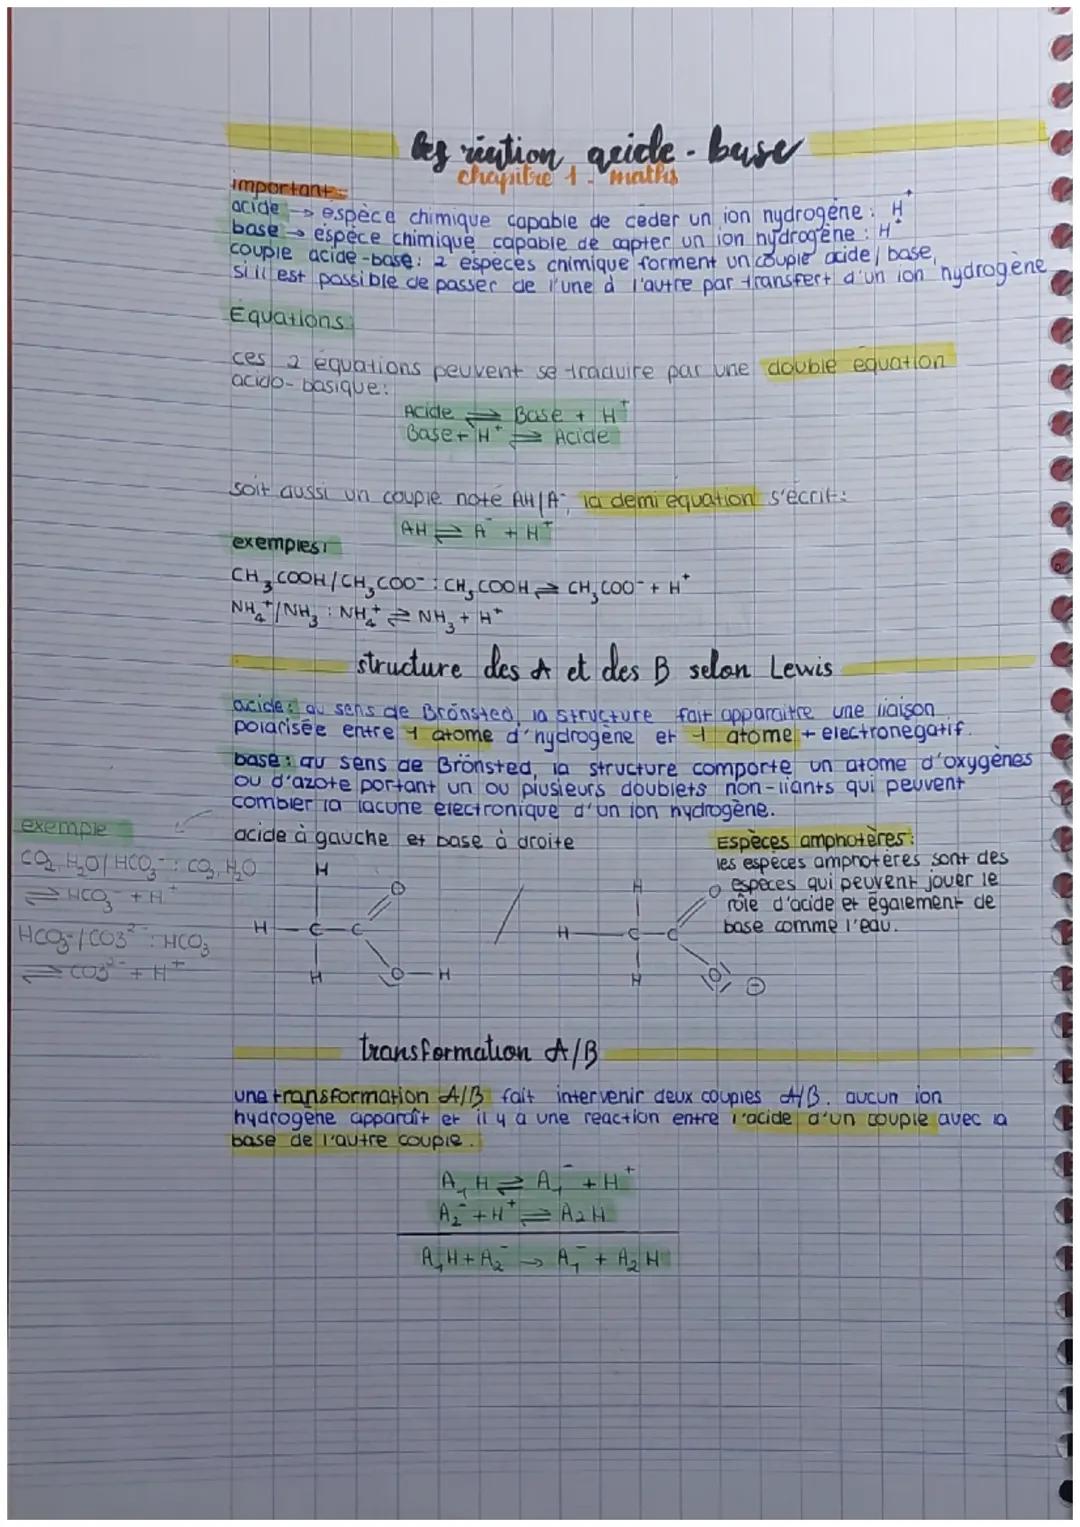 les réaction acide-base
chapitre 1 - maths
important:
acide → espèce chimique capable de ceder un ion hydrogène : H⁺
base → espèce chimique capable de capter un ion hydrogène : H⁺
couple acide-base: 2 espèces chimique forment un couple acide/base,
si il est possible de passer de l'une à l'autre par transfert d'un ion hydrogène
Équations
ces 2 équations peuvent se traduire par une double équation
acido-basique:
Acide ⇌ Base + H⁺
Base + H⁺ ⇌ Acide
soit aussi un couple noté AH/A⁻, la demi équation s'écrit:
AH ⇌ A⁻ + H⁺
exemples:
CH₃COOH/CH₃COO⁻ : CH₃COOH ⇌ CH₃COO⁻ + H⁺
NH₄⁺/NH₃ : NH₄⁺ ⇌ NH₃ + H⁺
structure des A et des B selon Lewis
acide: au sens de Brönsted, la structure fait apparaître une liaison
polarisée entre 1 atome d'hydrogène et 1 atome + electronegatif.
base: au sens de Brönsted, la structure comporte un atome d'oxygènes
ou d'azote portant un ou plusieurs doublets non-liants qui peuvent
combler la lacune electronique d'un ion hydrogène.
acide à gauche et base à droite
exemple
CO₂,H₂O/HCO₃⁻ : CO₂,H₂O
⇌ HCO₃⁻ + H⁺
HCO₃⁻/CO3²⁻ : HCO₃
⇌ CO3²⁻ + H⁺
H
O
H - C - C
H
O - H
/
H
O
H - C - C
H
O ⊖
Espèces amphotères:
les espèces amphotères sont des
espèces qui peuvent jouer le
rôle d'acide et également de
base comme l'eau.
transformation A/B
une transformation A/B fait intervenir deux couples A/B. aucun ion
hydrogène apparaît et il y a une reaction entre l'acide d'un couple avec la
base de l'autre couple.
A₁H ⇌ A₁⁻ + H⁺
A₂⁻ + H⁺ ⇌ A2H
A₁H + A₂⁻ → A₁⁻ + A₂H